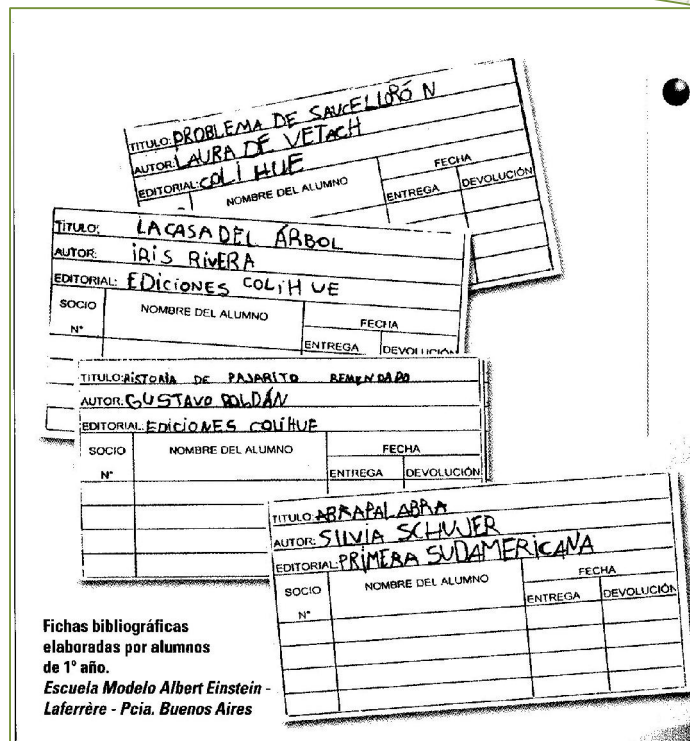 TITULO: PROBLEMA DE SAUCELLORÓN
AUTOR: LAURA DE VETACH
EDITORIAL: COLI HUE
NOMBRE DEL ALUMNO
FECHA
ENTREGA
DEVOLUCIÓN
TITULO: LA CASA DEL ÁRBOL
AUTOR: IRIS RIVERA
EDITORIAL: EDICIONES COLIHUE
SOCIO
N°
NOMBRE DEL ALUMNO
FECHA
ENTREGA
DEVOLUCIÓN
TITULO: HISTORIA DE PAJARITO REMENDADO
AUTOR: GUSTAVO ROLDÁN
EDITORIAL: EDICIONES COLIHUE
SOCIO
N°
NOMBRE DEL ALUMNO
FECHA
ENTREGA
DEVOLUCIÓN
TITULO: ABRAPALABRA
AUTOR: SILVIA SCHUJER
EDITORIAL: PRIMERA SUDAMERICANA
SOCIO
N°
NOMBRE DEL ALUMNO
FECHA
ENTREGA
DEVOLUCIÓN
Fichas bibliográficas
elaboradas por alumnos
de 1º año.
Escuela Modelo Albert Einstein -
Laferrère - Pcia. Buenos Aires